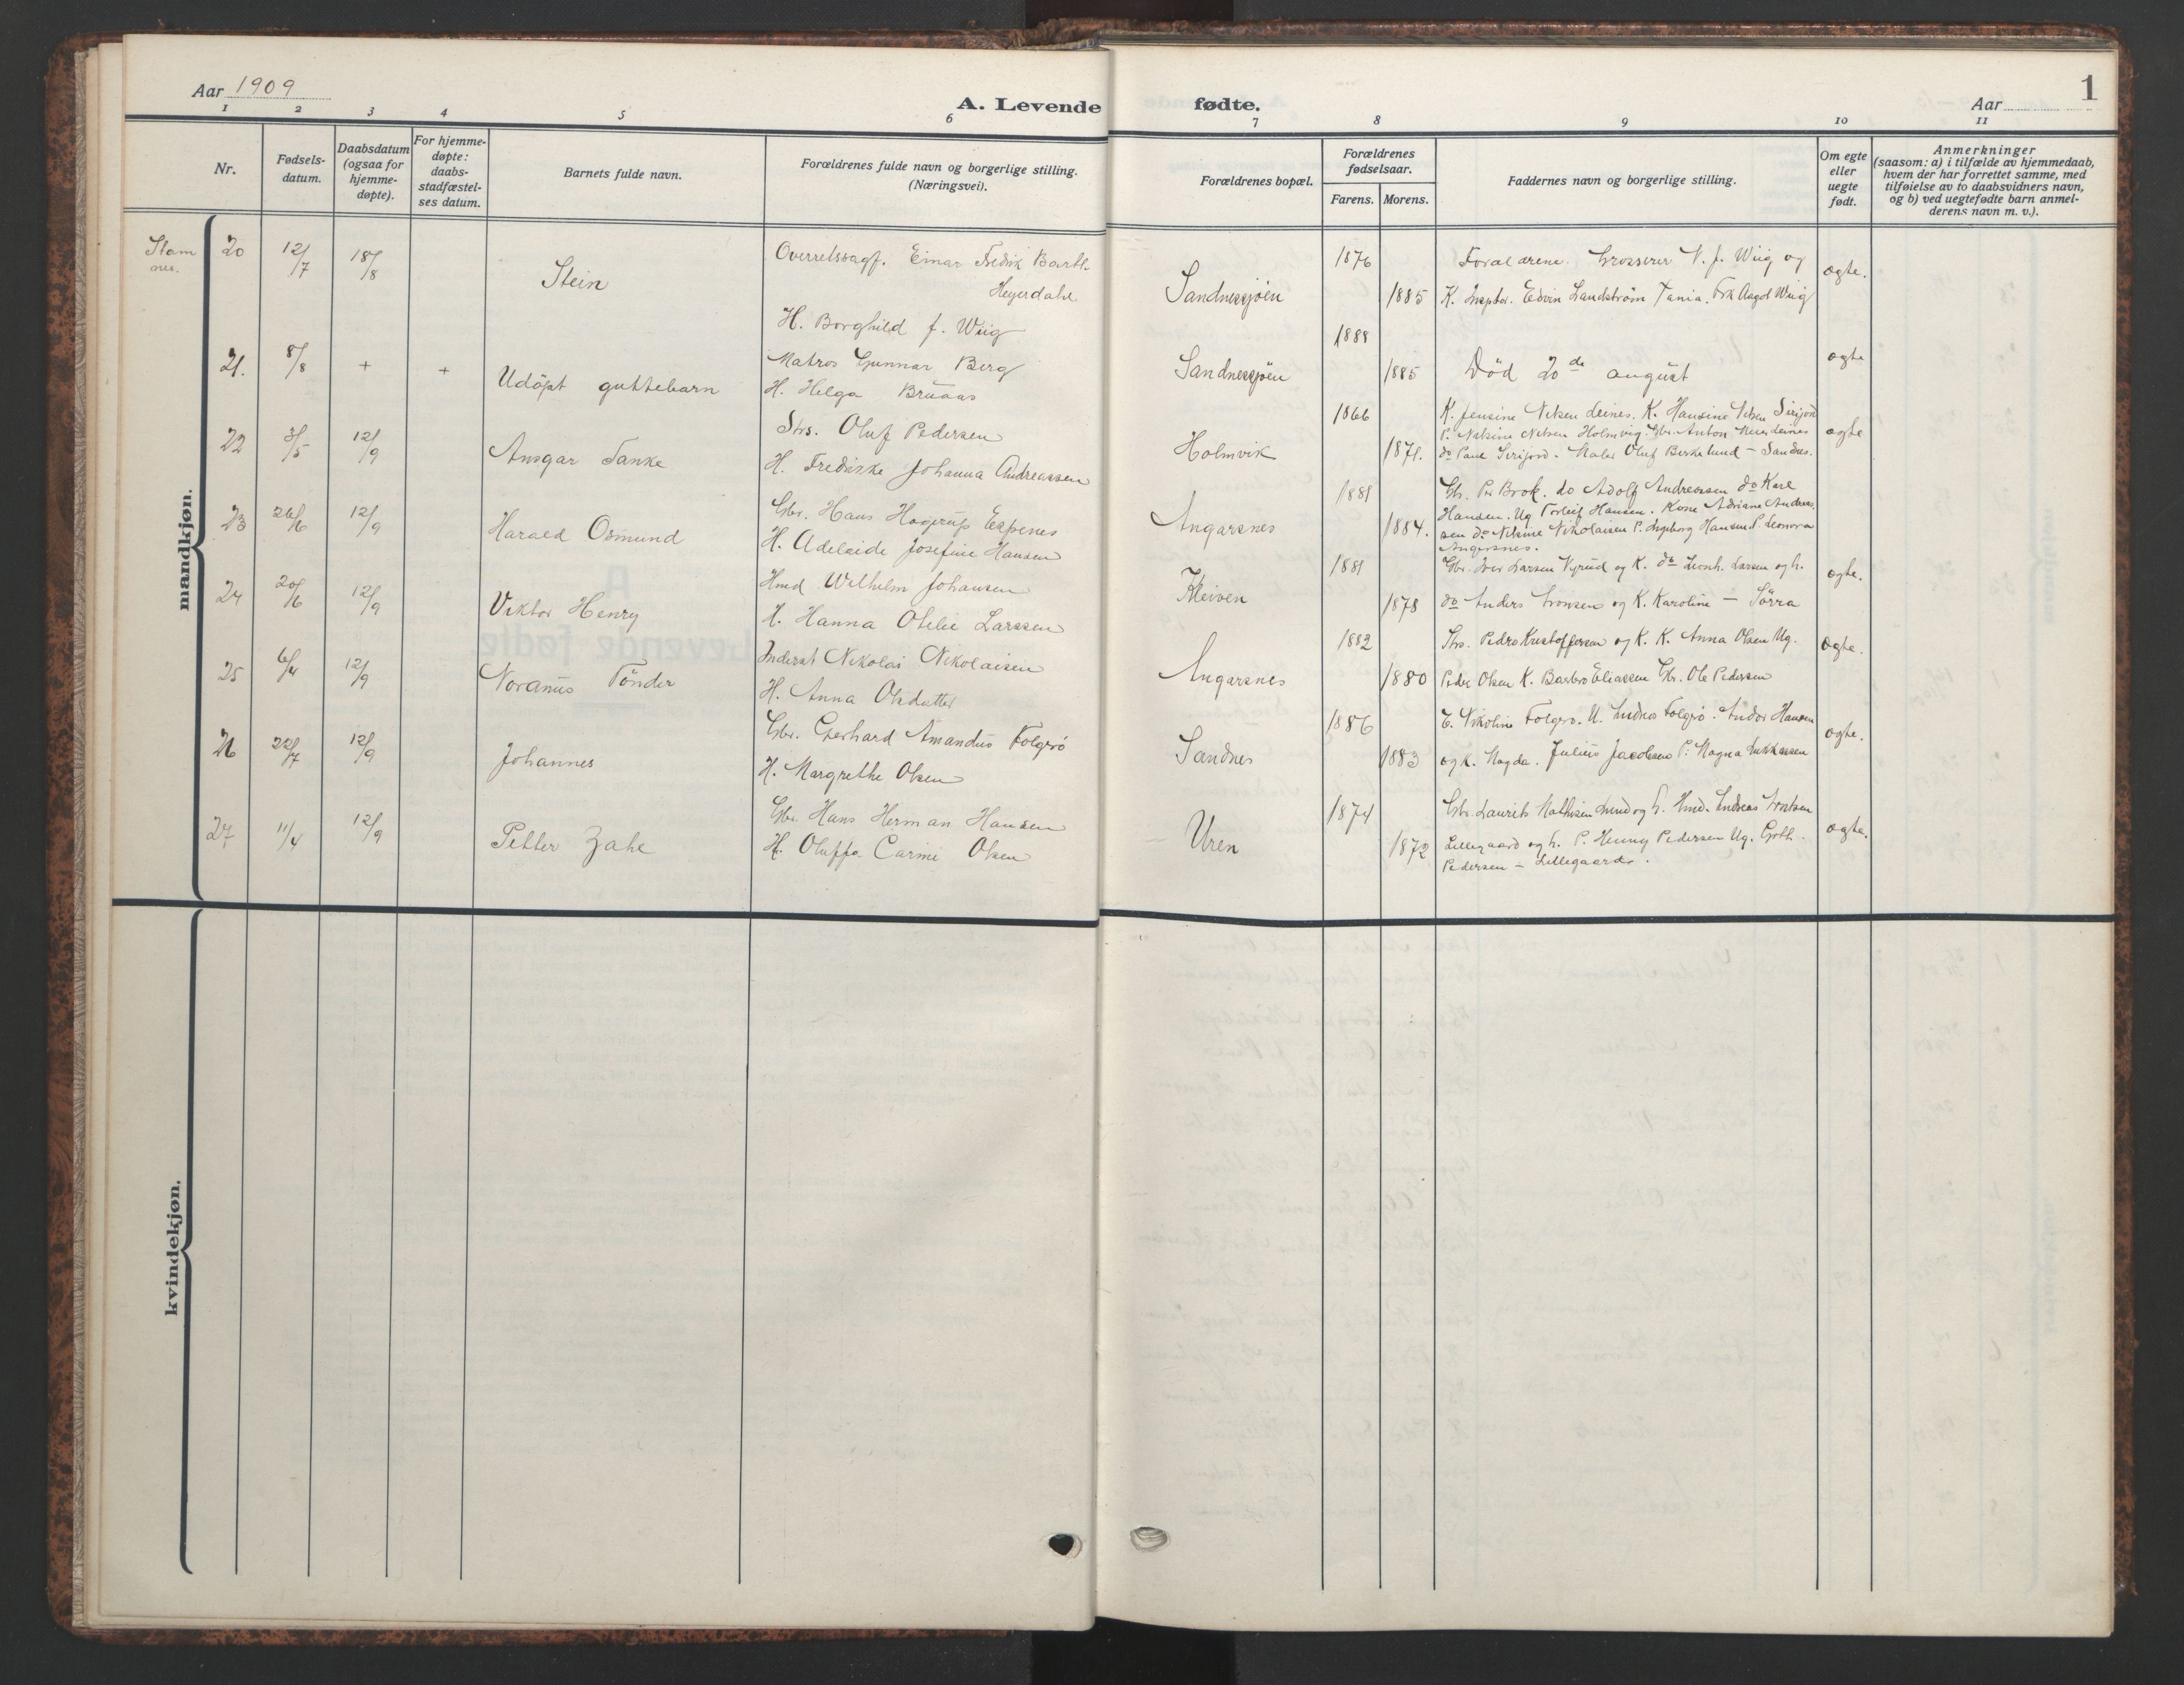 Aar 1909
A. Levende fødte.
Aar
1
1 2 3 4 5 6 7 8 9 10 11
Nr.
Fødsels-
datum.
Daabsdatum
(ogsaa for
hjemme-
døpte).
For hjemme-
døpte:
daabs-
stadfæstel-
ses datum.
Barnets fulde navn.
Forældrenes fulde navn og borgerlige stilling.
(Næringsvei).
Forældrenes bopæl.
Forældrenes
fødselsaar.
Farens. Morens.
Faddernes navn og borgerlige stilling.
Om egte
eller
uegte
født.
Anmerkninger
(saasom: a) i tilfælde av hjemmedaab,
hvem der har forrettet samme, med
tilføielse av to daabsvidners navn,
og b) ved uegtefødte barn anmel-
derens navn m. v.).
mandkjøn.
Stam
nes.
20 12/7 18/8 Stein
Overretssagf. Einar Fredrik Barth
Heyerdahl
H. Borghild f. Wiig
Sandnessjöen
1876
1885
Forældrene. Grosserer N. J. Wiig og
K. Edvin Landström Tania. Frk Aagot Wiig
ægte.
21. 8/8 + + Udöpt guttebarn
Matros Gunnar Berg
H. Helga Bruaas
Sandnessjöen
1888
1885
Död 20de august
ægte
22 3/5 12/9 Ansgar Tanke
Strs. Oluf Pedersen
H. Fredrikke Johanna Andreassen
Holmvik
1866
1871.
K. Jensine Nilsen Leines. K. Hansine Nilsen
P. Nilsine Nilsen Holmvig. Gbr. Anton Leines
do Paul Maler Oluf Birkelund - Sandnes.
ægte
23 26/6 12/9 Harald Osmund
Gbr. Hans Hagerup Espenes
H. Adelaide Josefine Hansen
Angarsnes
1881
1884.
Gbr. Per Brok. do Adolf Andreassen do Karl
Hansen. Ug Torleif Hansen. Kone Adriane Andreas
sen do Nilsine Nikolaisen P. Ingeborg Hansen P. Leonora
Angersnes.
24 20/6 12/9 Viktor Henry
Hmd Wilhelm Johansen
H. Hanna Otelie Larssen
Kleiven
1881
1878
Gbr. Iver Larsen og K. do Leonh. Larsen og h.
do Anders Tronsen og K. Karoline - Sörra
ægte.
25 6/4 12/9 Noranus Tönder
Inderst Nikolai Nikolaisen
H. Anna Olsdatter
Angarsnes
1882
1880
Strs. Peder Kristoffersen og K. K. Anna Olsen Ug.
Peder Olsen K. Barbro Eliassen Gbr. Ole Pedersen
ægte.
26 22/7 12/9 Johannes
Gbr. Gerhard Amandus Folgerö
H. Margrethe Olsen
Sandnes
1886
1883
E. Nikoline Folgerö. U. Folgerö. Andor Hansen
og K. Magda. Julius Jacobsen P. Magna Lukkassen
ægte.
27 11/4 12/9 Petter Zahe
Gbr. Hans Herman Hansen
H. Oluffa Carini Olsen
Uren
1874
1872
Gbr. Laurits Mathisen Lund og h. Hmd. Andreas
Lillegaard og h. P. Henny Pedersen Ug.
Pedersen - Lillegaard.
ægte.
kvindekjøn.